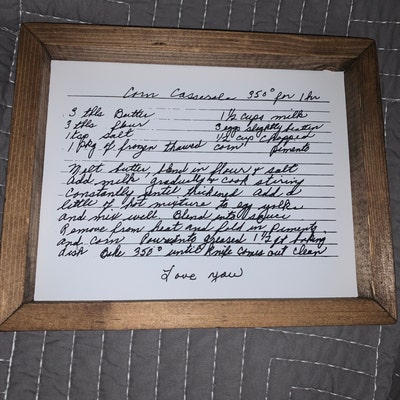 Corn Casserole 350° for 1 hr
3 tbls Butter 1 1/2 cups milk
3 tbls flour 3 egg slightly beaten
1 tsp salt 1/2 cup chopped
1 pkg of frozen thawed corn pimento
Melt butter, blend in flour & salt
Add milk gradually & cook stiring
Constantly until thickened Add a
little of hot mixture to egg yolks
and mix well. Blend into
Remove from heat and fold in pimento
and corn Pour into greased 1 1/2 pt baking
dish Bake 350° until knife comes out clean
Love you